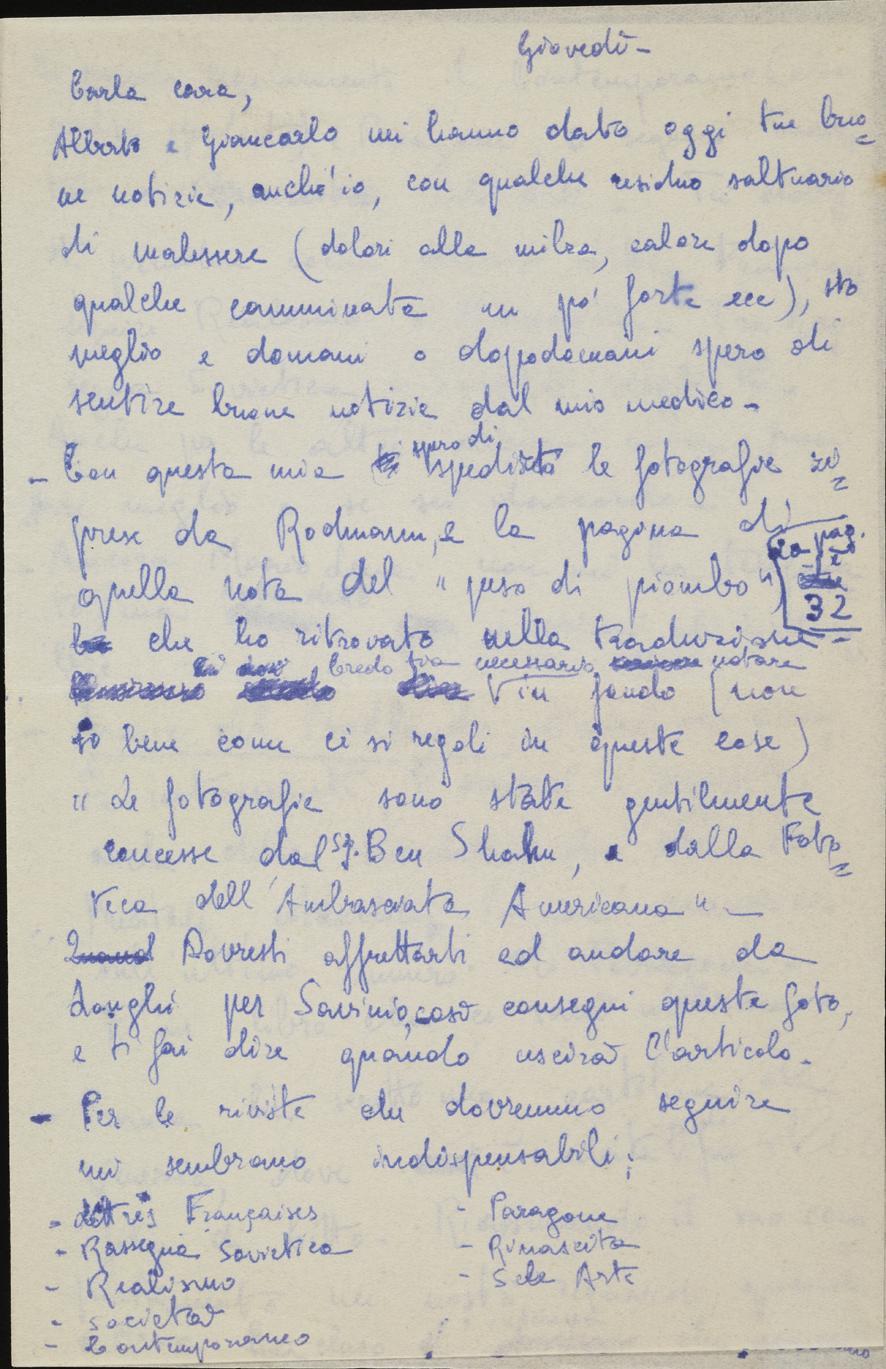 Giovedì -
Carla cara,
Alberto e Giancarlo mi hanno dato oggi tue buo=
ne notizie, anch'io, con qualche residuo saltuario
di malessere (dolori alla milza, calore dopo
qualche camminata un po' forte ecc), sto
meglio e domani o dopodomani spero di
sentire buone notizie dal mio medico -
- Con questa mia spero di spedirti le fotografie ri=
prese da Rodmann, e la pagina di
quella nota del " peso di piombo" (la pag. è 32)
che ho ritrovato nella traduzione -
Credo sia necessario notare
in fondo (non
so bene come ci si regoli in queste cose)
" Le fotografie sono state gentilmente
concesse dal Sg. Ben Shahn, e dalla Foto=
teca dell'Ambasciata Americana" -
Dovresti affrettarti ed andare da
Longhi per Savinio, così consegni queste foto,
e ti fai dire quando uscirà l'articolo -
- Per le riviste che dovremmo seguire
mi sembrano indispensabili:
- Lettres Françaises
- Rassegna Sovietica
- Realismo
- Società
- Contemporaneo
- Paragone
- Rinascita
- Sele Arte